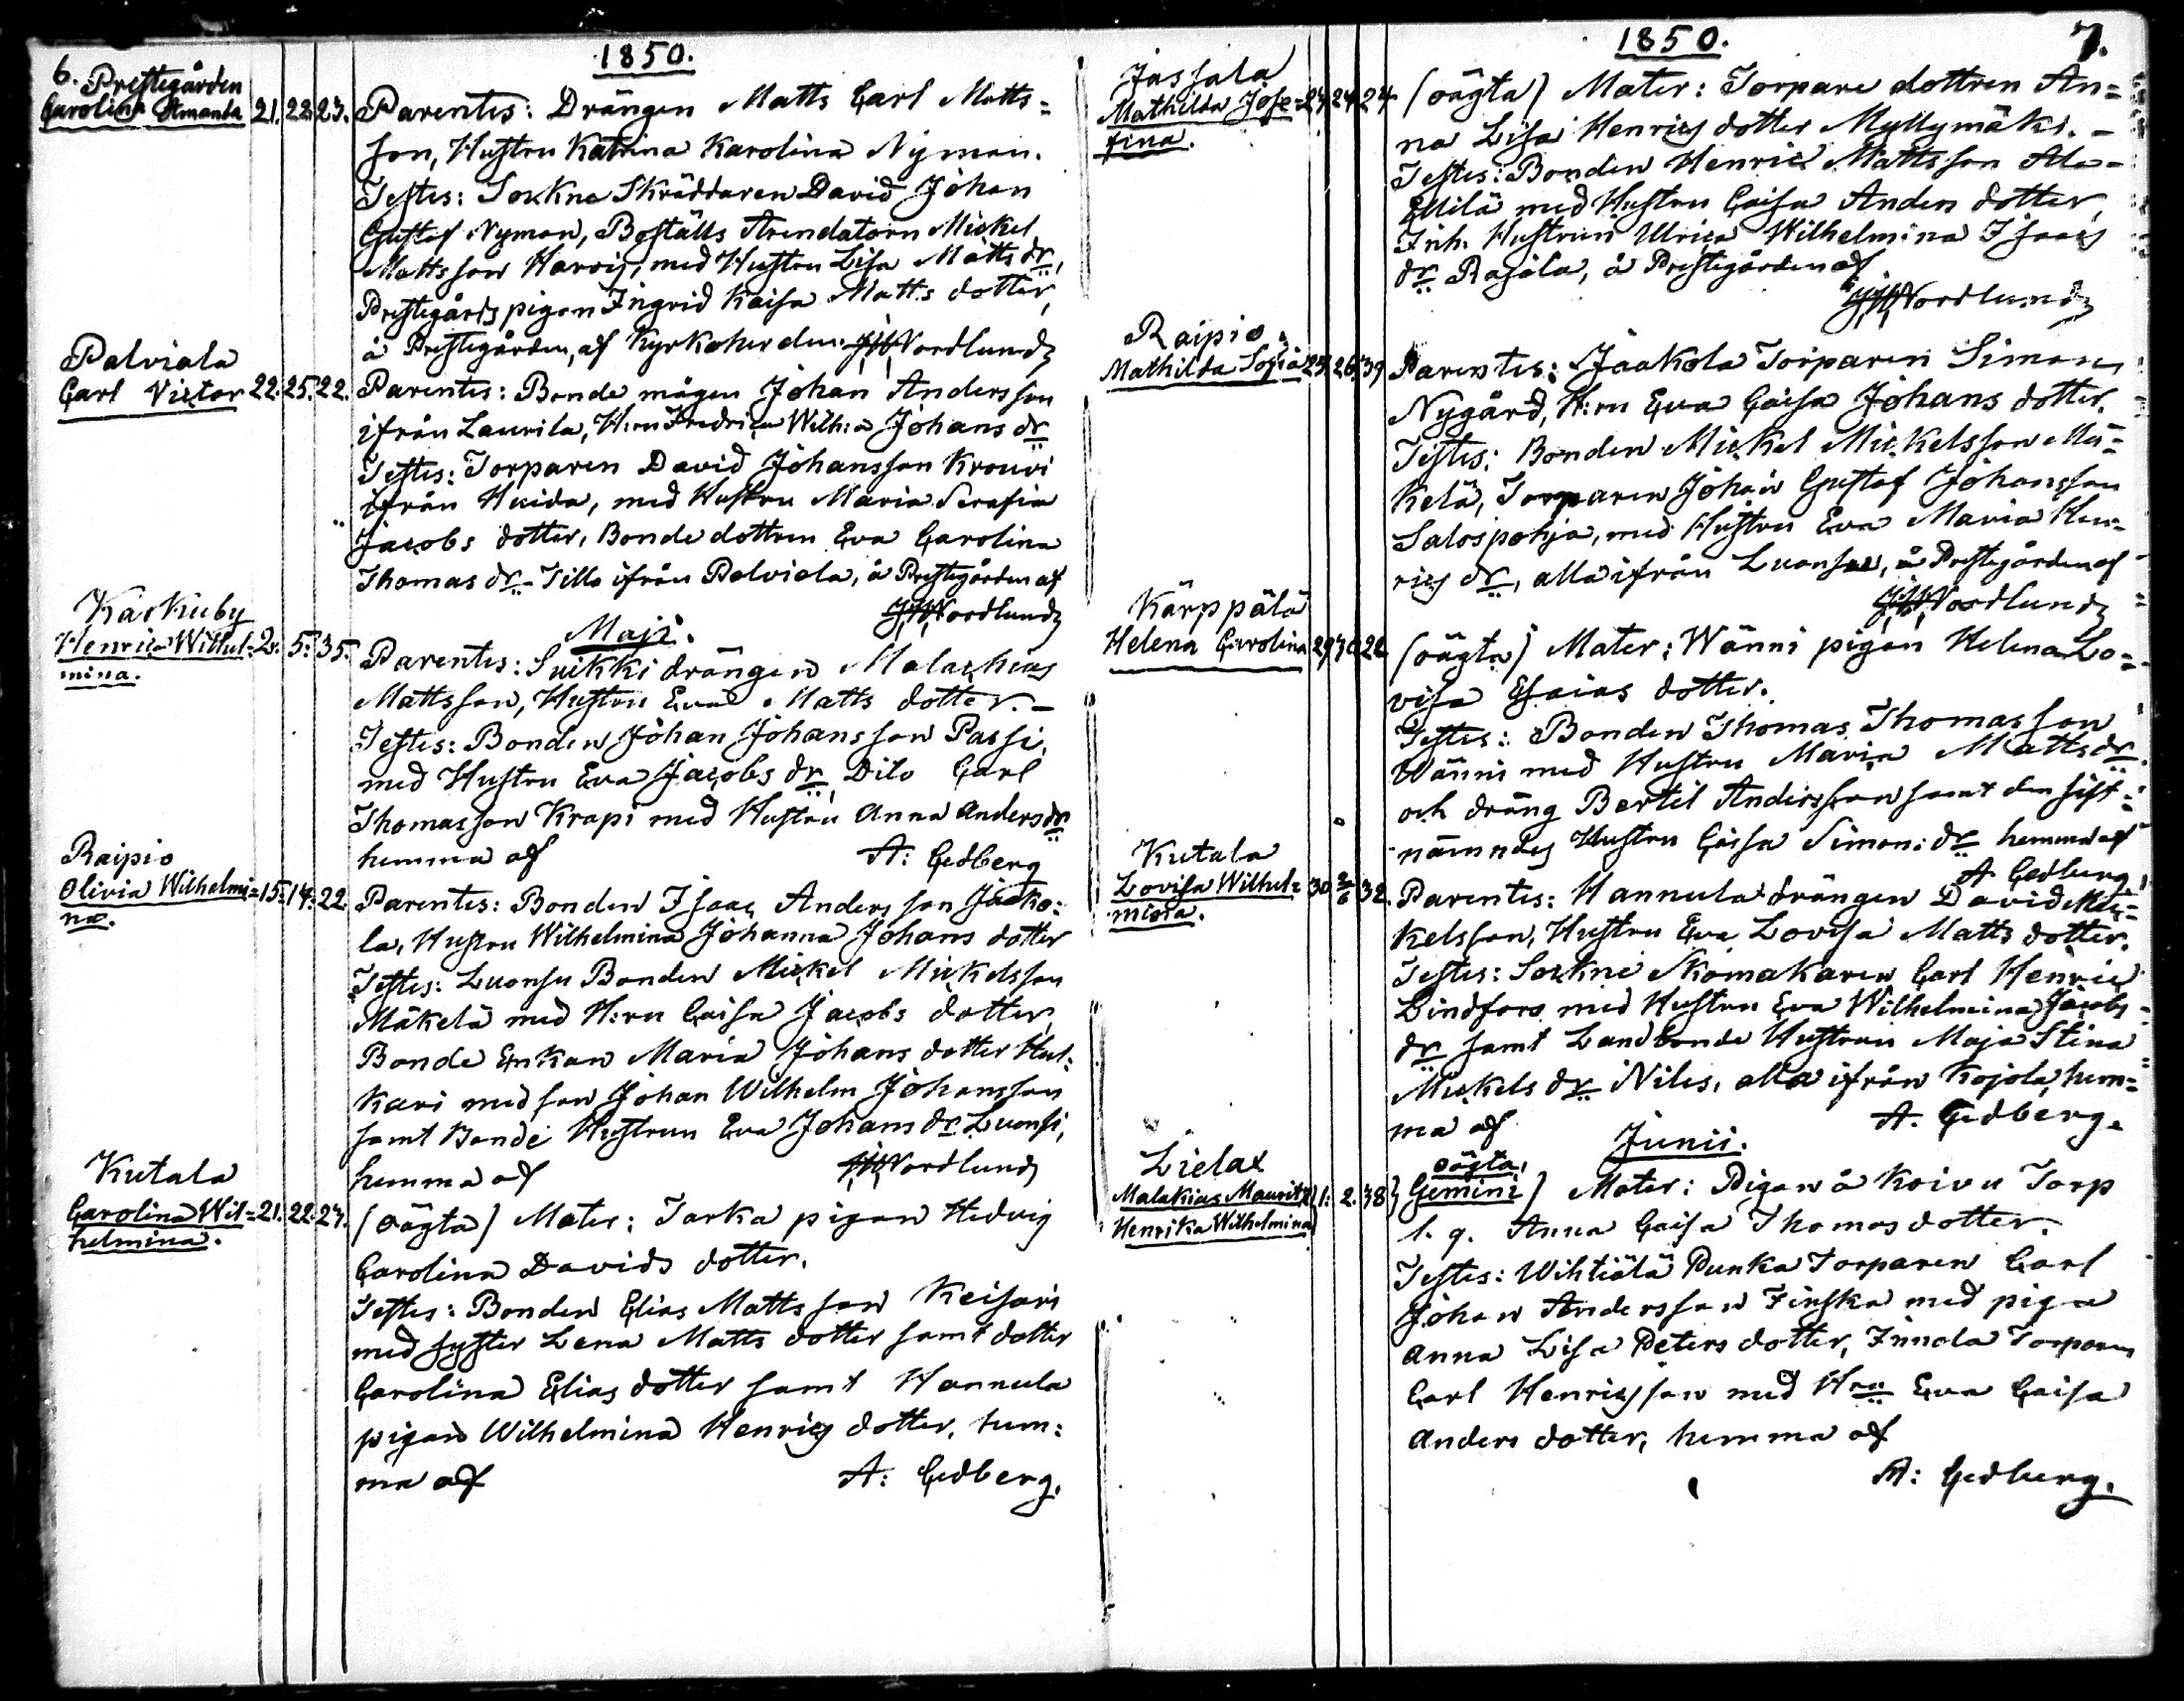 6.
1850.
Prestegården
Carolina Amanda 21. 22. 23.
Parentes: Drängen Matts Carl Matts=
son, Hustru Katrina Karolina Nyman.
Testes: Sockne Skräddaren David Johan
Gustaf Nyman, Boställs Arendatorn Mickel
Mattsson Harvis, med Hustru Lisa Matts dr,
Prestegårds pigan Ingrid Kaisa Matts dotter,
å Prestegården, af Kyrkoherden Nordlund
Palviala
Carl Victor 22. 25. 22.
Parentes: Bonde mågen Johan Andersson
ifrån Laurila, H:ru Fredrica Wilh:a Johans dr
Testes: Torparen David Johansson Krouvi
ifrån Huida, med Hustru Maria Serafia
Jacobs dotter, Bonde dottren Eva Carolina
Thomas dr Tillo ifrån Palviala, å Prestegården af
Nordlund
Maji.
Karkuby
Henrica Wilhel= 2. 5. 35.
mina.
Parentes: Suikki drängen Malachias
Mattsson, Hustru Eva Matts dotter. –
Testes: Bonden Johan Johansson Passi,
med Hustru Eva Jacobs dr, Dito Carl
Thomasson Krapi med Hustru Anna Anders dr
hemma af A: Cedberg
Raipio
Olivia Wilhelmi= 15. 17. 22.
na.
Parentes: Bonden Isaac Andersson Jaako=
la, Hustru Wilhelmina Johanna Johans dotter
Testes: Luonsu Bonden Mickel Mickelsson
Mäkelä med H:ru Caisa Jacobs dotter,
Bonde Enkan Maria Johans dotter
kari med son Johan Wilhelm Johansson
samt Bonde Hustrun Eva Johans dr Luonsi,
hemma af Nordlund
Kutala
Carolina Wil= 21. 22. 27.
helmina.
(oägta) Mater: Tarka pigan Hedvig
Carolina Davids dotter.
Testes: Bonden Elias Mattsson Keisari
med syster Lena Matts dotter samt dotter
Carolina Elias dotter samt Hannula
pigan Wilhelmina Henrics dotter, hem=
ma af A: Cedberg.
1850.
7.
Jassala
Mathilda Jose= 24 24 24
fina.
(oägta) Mater: Torpare dottren An=
na Lisa Henrics dotter Myllymäki. –
Testes: Bonden Henric Mattsson Ala=
Ellilä med Hustru Caisa Anders dotter,
Inh. Hustrun Ulrica Wilhelmina Isaacs
dr Rajala, å Prestegården af
Nordlund
Raipio.
Mathilda Sofia 25. 26. 39
Parentes: Jaakola Torparen Simon
Nygård, H:ru Eva Caisa Johans dotter.
Testes: Bonden Mickel Mickelsson Mä=
kelä, Torparen Johan Gustaf Johansson
Salospohja, med Hustru Eva Maria Hen=
rics dr, alla ifrån Luonsu, å Prestegården af
Nordlund
Kärppälä
Helena Carolina 29 30 22
(oägta) Mater: Wänni pigan Helena Lo=
visa Esaias dotter.
Testes: Bonden Thomas Thomasson
Wänni med Hustru Maria Matts dr.
och dräng Bertil Andersson samt den sist=
nämndes Hustru Caisa Simons dr hemma af
A Cedberg
Kutala
Lovisa Wilhel= 30 2/6 32.
mina.
Parentes: Hannula drängen David Mic=
kelsson, Hustru Eva Lovisa Matts dotter.
Testes: Sockne Skomakaren Carl Henric
Lindfors med Hustru Eva Wilhelmina Jacobs
dr samt Landbonde Hustrun Maja Stina
Mickels dr Niles, alla ifrån Kojola, hem=
ma af A. Cedberg.
Junii.
Lielax
Malakias Mauritz } 1. 2. 38
Henrika Wilhelmina
oägta,
Gemini) Mater: Pigan å Koivu Torp
l. q. Anna Caisa Thomas dotter.
Testes: Wihtiälä Punka Torparen Carl
Johan Andersson Finska med piga
Anna Lisa Peters dotter, Innola Torparen
Carl Henricsson med Hru Eva Caisa
Anders dotter, hemma af
A: Cedberg.